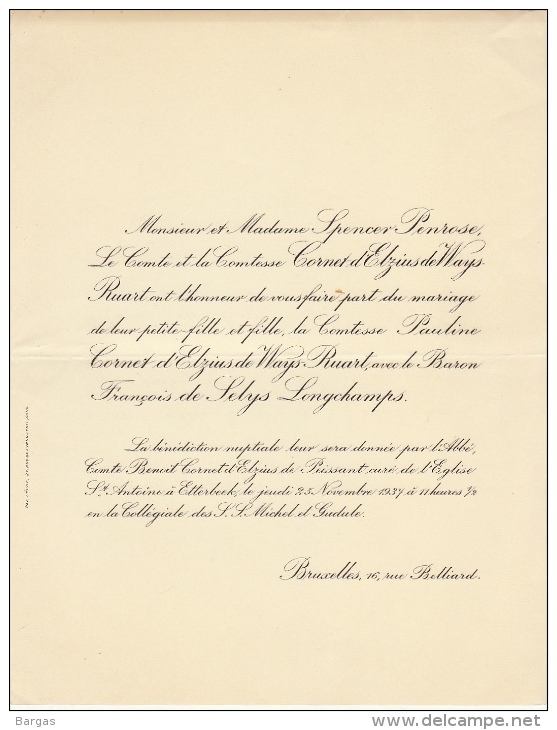 Monsieur et Madame Spencer Penrose,
Le Comte et la Comtesse Cornet d'Elzius de Ways-
Ruart ont l'honneur de vous faire part du mariage
de leur petite-fille et fille, la Comtesse Pauline
Cornet d'Elzius de Ways-Ruart, avec le Baron
François de Selys Longchamps.
La bénédiction nuptiale leur sera donnée par l'Abbé,
Comte Benoit Cornet d'Elzius de Peissant, curé de l'Eglise
St. Antoine à Etterbeek, le jeudi 25 Novembre 1937 à 11 heures 1/2
en la Collégiale des S.S. Michel et Gudule.
Bruxelles, 16, rue Belliard.
Bargas
delcampe.net